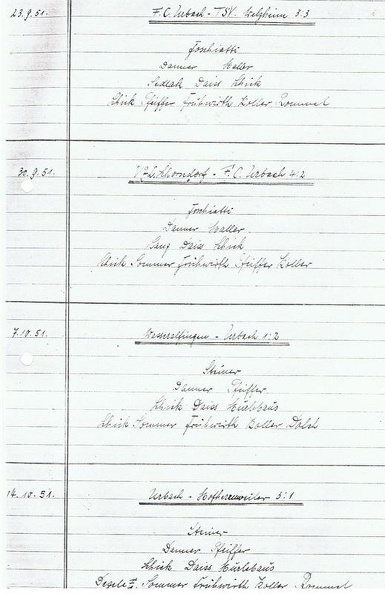 23.9.51. F.C. Urbach - TSV. Welzheim 3:3
Foschiatti
Danner Haller
Sedlak Daiss Schick
Schick Pfeiffer Frühwirth Koller Rommel
30.9.51. VfL Schorndorf - F.C. Urbach 4:2
Foschiatti
Danner Haller
Daiss Schick
Schick Sommer Frühwirth Pfeiffer Koller
7.10.51. Wasseralfingen - Urbach 1:2
Steiner
Danner Pfeiffer
Schick Daiss Hürlebaus
Schick Sommer Frühwirth Koller Dolch
14.10.51. Urbach - Hofherrnweiler 5:1
Steiner
Danner Pfeiffer
Schick Daiss Hürlebaus
Degele II. Sommer Frühwirth Koller Rommel